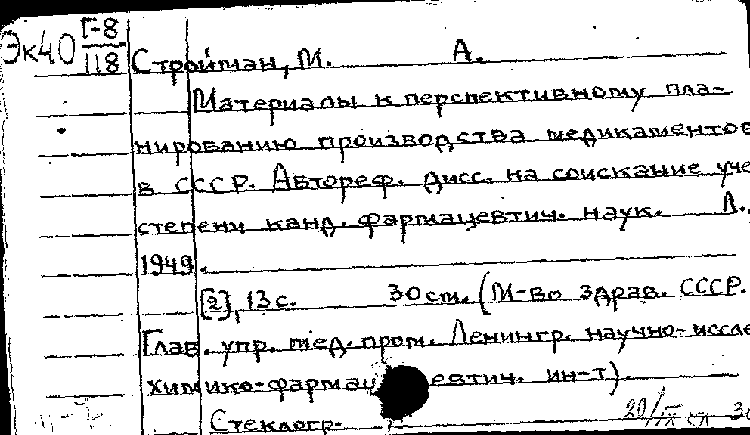 Эк40 Г-8
118
Стройман, М. А.
Материалы к перспективному пла-
нированию производства медикаментов
в СССР. Автореф. дисс. на соискание уче
степени канд. фармацевтич. наук. Л.,
1949.
[2], 13 с. 30 см. (М-во здрав. СССР.
Глав. упр. мед. пром. Ленингр. научно-иссле
химико-фармацевтич. ин-т).
Стеклогр.
20/IX